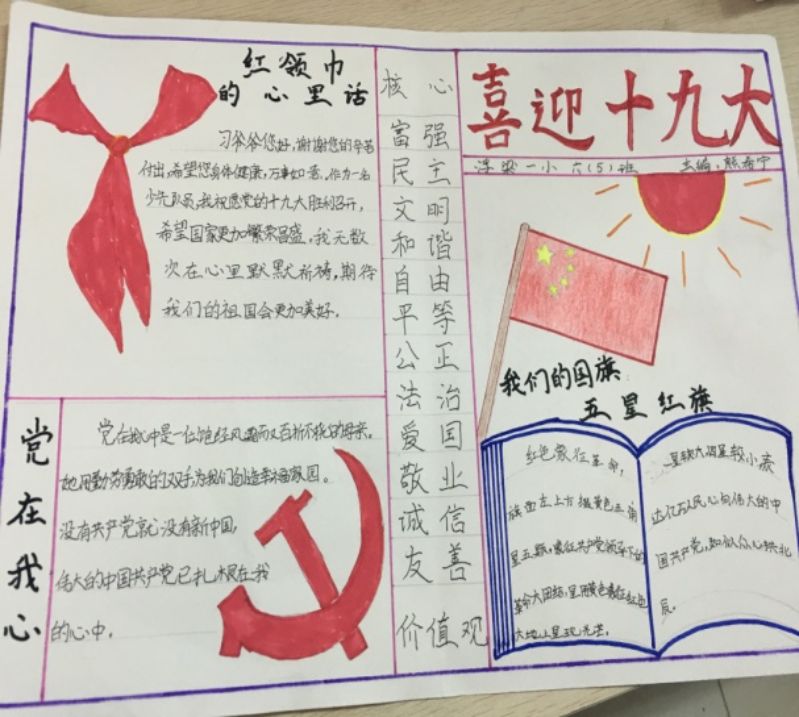 红领巾
的心里话
习爷爷您好,谢谢您的辛苦
付出,希望您身体健康,万事如意。作为一名
少先队员,我祝愿党的十九大胜利召开,
希望国家更加繁荣昌盛,我无数
次在心里默默祈祷,期待
我们的祖国会更加美好。
党在我心
党在我心中是一位饱经风霜而又百折不挠的母亲。
她用勤劳勇敢的双手为我们创造幸福家园。
没有共产党就没有新中国,
伟大的中国共产党已扎根在我
的心中。
核心
富强
民主
文明
和谐
自由
平等
公正
法治
爱国
敬业
诚信
友善
价值观
喜迎十九大
浮梁一小 六(5)班 主编:熊希宁
我们的国旗:
五星红旗
红色象征革命,
旗面左上方缀黄色五角
星五颗,象征共产党领导下的
革命大团结,星用黄色象征红色
大地上呈现光芒。
一星较大四星较小表
达亿万人民心向伟大的中
国共产党,如似众心拱北
辰。